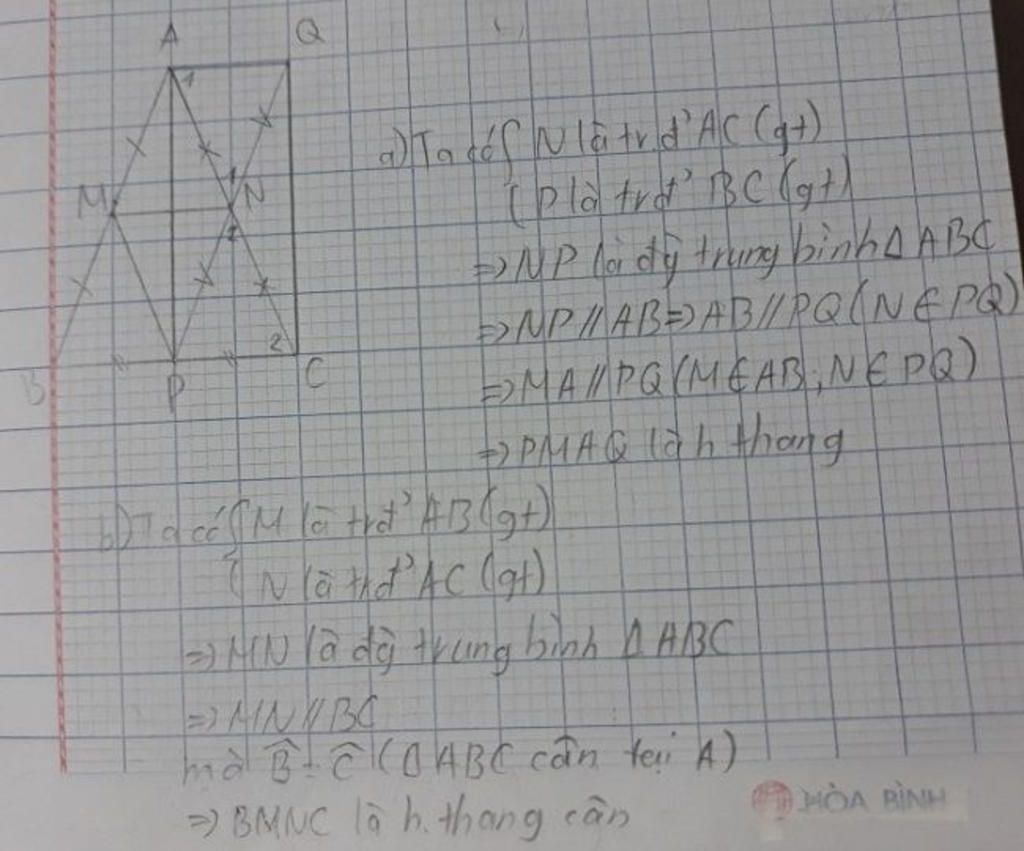 A Q
a) Ta có { N là tr.đ' AC (gt)
{ P là trđ' BC (gt)
M N
=> NP là đg trung bình Δ ABC
=> NP // AB => AB // PQ (N ∈ PQ)
2
B P C
=> MA // PQ (M ∈ AB; N ∈ PQ)
=> PMAQ là h thang
b) Ta có { M là trđ' AB (gt)
{ N là trđ' AC (gt)
=> MN là đg trung bình Δ ABC
=> MN // BC
mà B̂ = Ĉ (Δ ABC cân tại A)
=> BMNC là h. thang cân
HÒA BÌNH